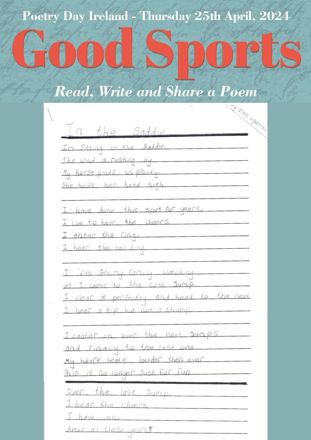 Poetry Day Ireland - Thursday 25th April, 2024
Good Sports
Read, Write and Share a Poem
In the Saddle
I'm Sitting in the Saddle.
The wind is rushing by.
My horse pulls
She holds her head high.
I have done this sport for years.
I live to hear the cheers
I enter the ring.
I hear the
I family watching.
as I canter to the jump
I clear it perfectly and head to the next
I hear a tip but not a thump.
I canter on over the next jumps
and finally to the last one.
My heart beats louder then ever
this is no longer just for fun
over the last jump.
I hear the cheers
I have won
after all these years!